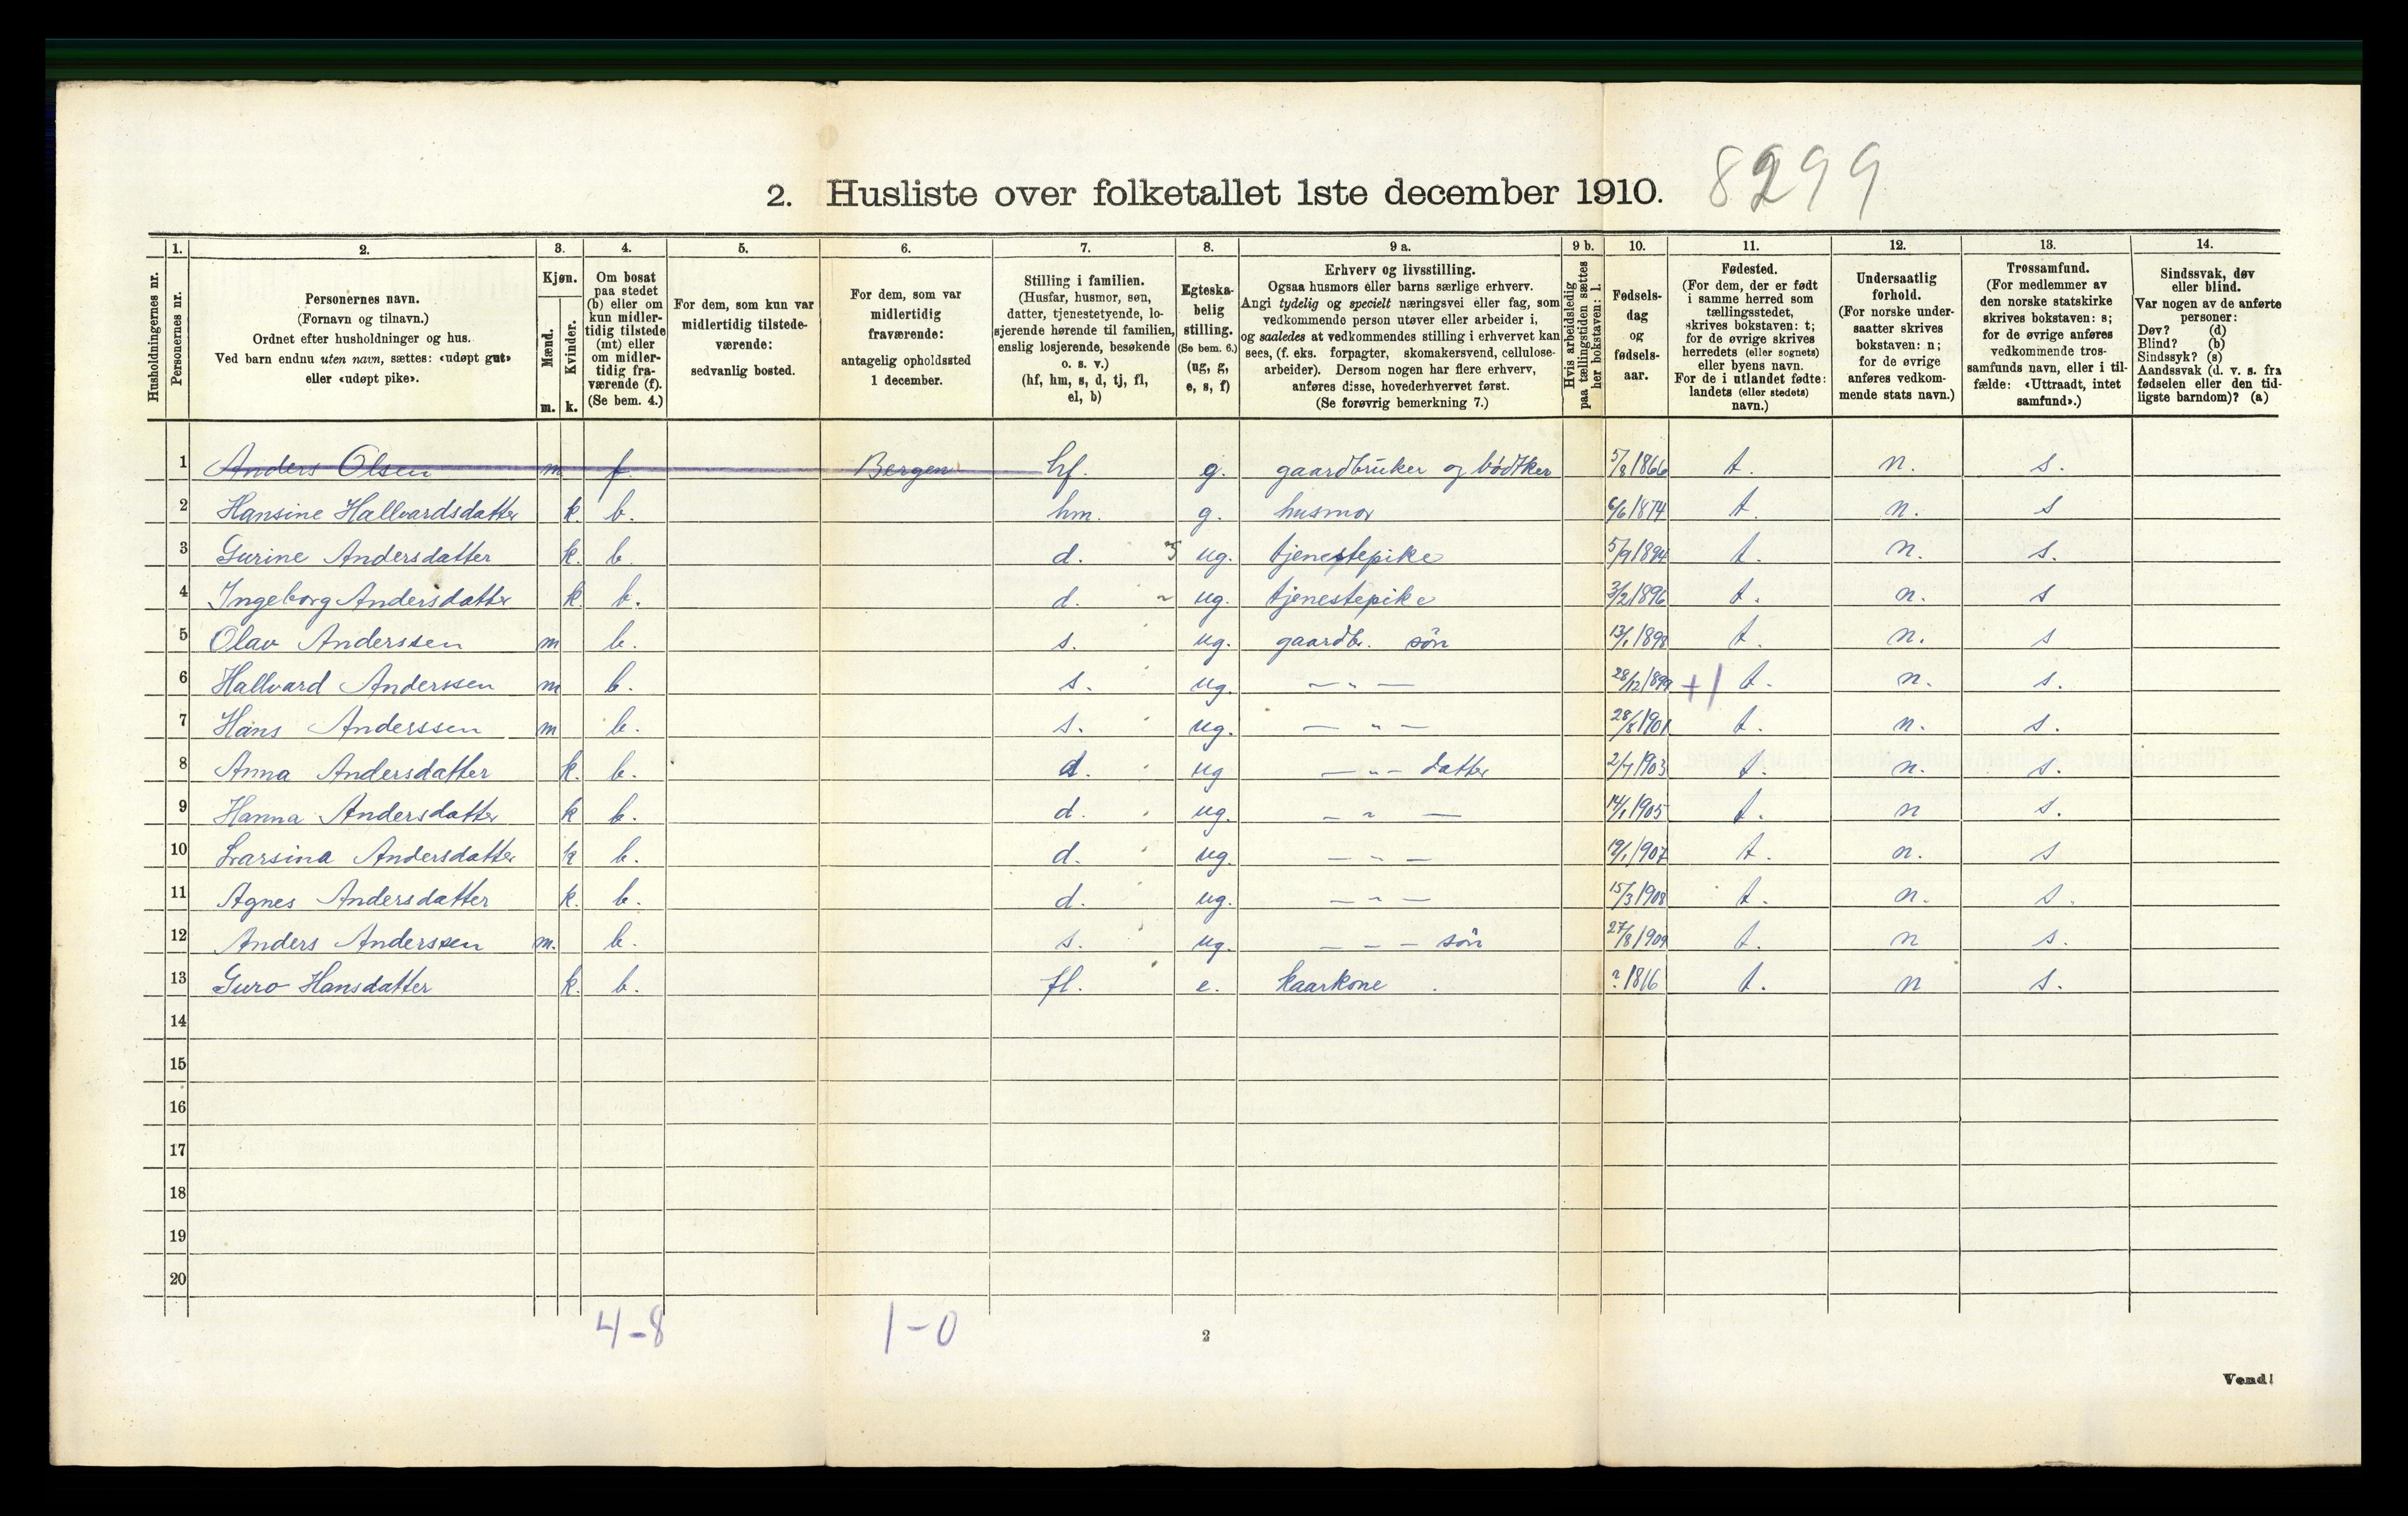 2. Husliste over folketallet 1ste december 1910. 8299
1. 2. 3. 4. 5. 6. 7. 8. 9 a. 9 b. 10. 11. 12. 13. 14.
Husholdningernes nr.
Personernes nr.
Personernes navn.
(Fornavn og tilnavn.)
Ordnet efter husholdninger og hus.
Ved barn endnu uten navn, sættes: «udøpt gut»
eller «udøpt pike».
Kjøn.
Mænd.
Kvinder.
m. k.
Om bosat
paa stedet
(b) eller om
kun midler-
tidig tilstede
(mt) eller
om midler-
tidig fra-
værende (f).
(Se bem. 4.)
For dem, som kun var
midlertidig tilstede-
værende:
sedvanlig bosted.
For dem, som var
midlertidig
fraværende:
antagelig opholdssted
1 december.
Stilling i familien.
(Husfar, husmor, søn,
datter, tjenestetyende, lo-
sjerende hørende til familien,
enslig losjerende, besøkende
o. s. v.)
(hf, hm, s, d, tj, fl,
el, b)
Egteska-
belig
stilling.
(Se bem. 6.)
(ug, g,
e, s, f)
Erhverv og livsstilling.
Ogsaa husmors eller barns særlige erhverv.
Angi tydelig og specielt næringsvei eller fag, som
vedkommende person utøver eller arbeider i,
og saaledes at vedkommendes stilling i erhvervet kan
sees, (f. eks. forpagter, skomakersvend, cellulose-
arbeider). Dersom nogen har flere erhverv,
anføres disse, hovederhvervet først.
(Se forøvrig bemerkning 7.)
Hvis arbeidsledig
paa tællingstiden sættes
her bokstaven: l.
Fødsels-
dag
og
fødsels-
aar.
Fødested.
(For dem, der er født
i samme herred som
tællingsstedet,
skrives bokstaven: t;
for de øvrige skrives
herredets (eller sognets)
eller byens navn.
For de i utlandet fødte:
landets (eller stedets)
navn.)
Undersaatlig
forhold.
(For norske under-
saatter skrives
bokstaven: n;
for de øvrige
anføres vedkom-
mende stats navn.)
Trossamfund.
(For medlemmer av
den norske statskirke
skrives bokstaven: s;
for de øvrige anføres
vedkommende tros-
samfunds navn, eller i til-
fælde: «Uttraadt, intet
samfund».)
Sindssvak, døv
eller blind.
Var nogen av de anførte
personer:
Døv? (d)
Blind? (b)
Sindssyk? (s)
Aandssvak (d. v. s. fra
fødselen eller den tid-
ligste barndom)? (a)
1 Anders Olsen m f. Bergen hf. g. gaardbruker og bødtker 5/8 1866 t. n. s.
2 Hansine Hallvardsdatter k. b. hm. g. husmor 6/6 1874 t. n. s
3 Gurine Andersdatter k. b. d. ug. tjenestepike 5/9 1894 t. n. s.
4 Ingeborg Andersdatter k. b. d. ug. tjenestepike 3/2 1896 t. n. s
5 Olav Anderssen m b. s. ug. gaardbr. søn 13/1 1898 t. n. s
6 Hallvard Anderssen m b. s. ug. — " — 28/12 1899 +1 t. n. s.
7 Hans Anderssen m b. s. ug. — " — 28/8 1901 t. n. s.
8 Anna Andersdatter k. b. d. ug — " — datter 2/7 1903 t. n. s.
9 Hanna Andersdatter k b. d. ug. — " — 14/1 1905 t. n s.
10 Larsina Andersdatter k b. d. ug. — " — 19/1 1907 t. n. s
11 Agnes Andersdatter k. b. d. ug. — " — 15/3 1908 t. n. s.
12 Anders Anderssen m. b. s. ug. — – — søn 27/8 1909 t. n s.
13 Guro Hansdatter k. b. fl. e. kaarkone ? 1816 t. n s.
14
15
16
17
18
19
20
4-8 1-0
2
Vend!